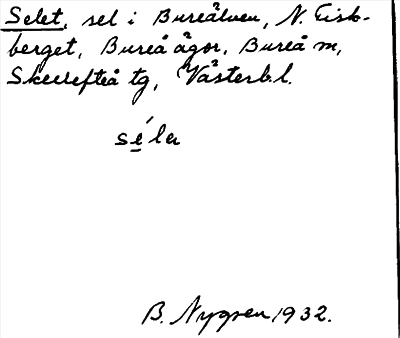 Selet, sel i Bureälven, N. Fisk-
berget, Bureå ägor, Bureå m,
Skellefteå tg, Västerb.l.
B. Nygren 1932.